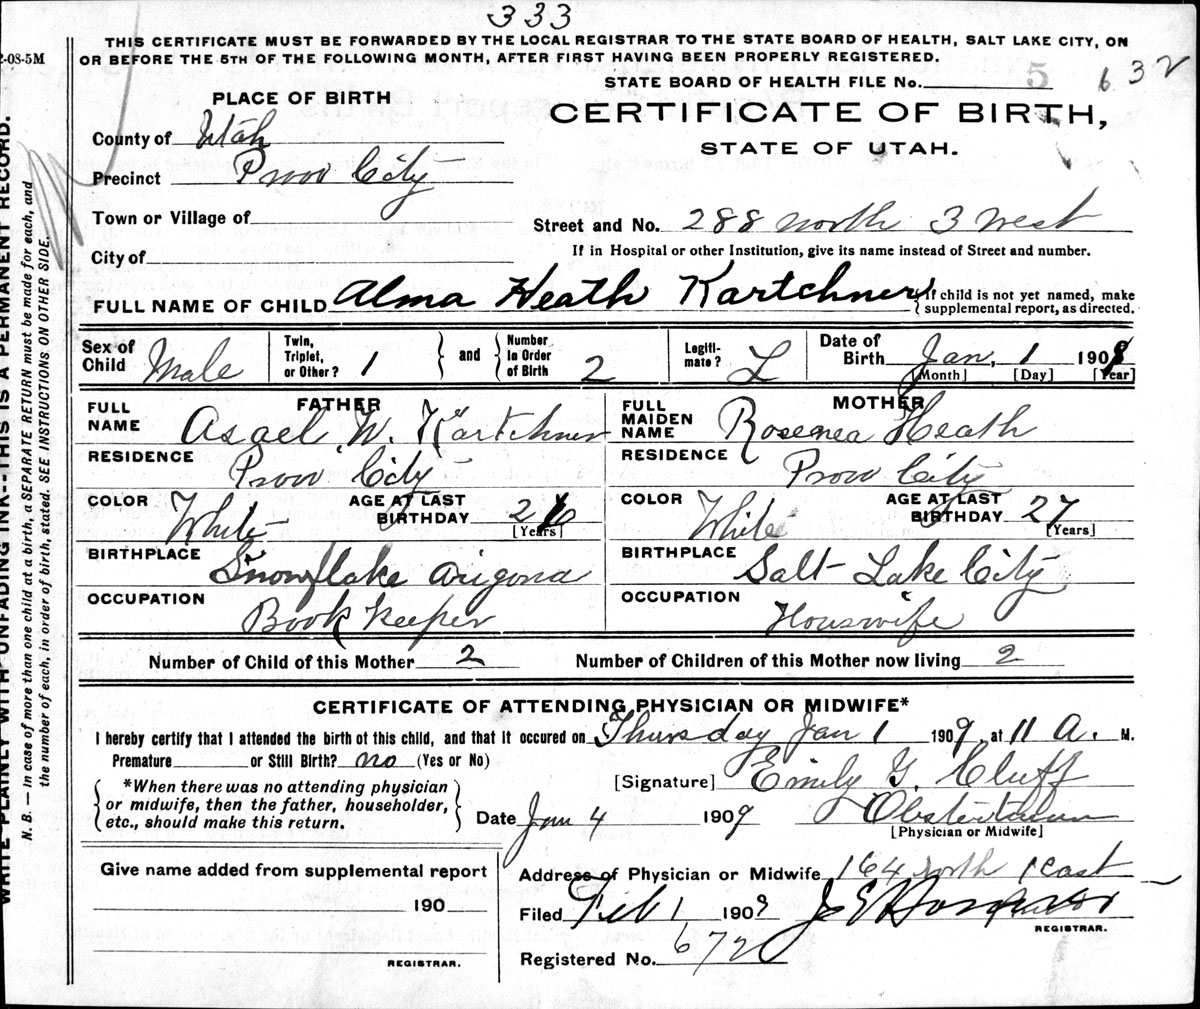 333
THIS CERTIFICATE MUST BE FORWARDED BY THE LOCAL REGISTRAR TO THE STATE BOARD OF HEALTH, SALT LAKE CITY, ON
OR BEFORE THE 5TH OF THE FOLLOWING MONTH, AFTER FIRST HAVING BEEN PROPERLY REGISTERED.
2-08-5M
STATE BOARD OF HEALTH FILE No. 5 632
PLACE OF BIRTH
CERTIFICATE OF BIRTH,
STATE OF UTAH.
County of Utah
Precinct Provo City
Town or Village of
Street and No. 288 North 3 West
City of
If in Hospital or other Institution, give its name instead of Street and number.
FULL NAME OF CHILD Alma Heath Kartchner
{If child is not yet named, make
supplemental report, as directed.
Sex of Child Male
Twin, Triplet, or Other? 1
and
Number In Order of Birth 2
Legiti-mate? L
Date of Birth Jan, 1 1909
[Month] [Day] [Year]
FATHER
FULL NAME Asael W. Kartchner
RESIDENCE Provo City
COLOR White
AGE AT LAST BIRTHDAY 26
[Years]
BIRTHPLACE Snowflake Arizona
OCCUPATION Book keeper
MOTHER
FULL MAIDEN NAME Rosenea Heath
RESIDENCE Provo City
COLOR White
AGE AT LAST BIRTHDAY 27
[Years]
BIRTHPLACE Salt Lake City
OCCUPATION Houswife
Number of Child of this Mother 2
Number of Children of this Mother now living 2
CERTIFICATE OF ATTENDING PHYSICIAN OR MIDWIFE*
I hereby certify that I attended the birth of this child, and that it occured on Thursday Jan 1 1909, at 11 A. M.
Premature or Still Birth? no (Yes or No)
*When there was no attending physician
or midwife, then the father, householder,
etc., should make this return.
[Signature] Emily G. Cluff
Date Jan 4 1909
[Physician or Midwife]
Give name added from supplemental report
190
REGISTRAR.
Address of Physician or Midwife 164 North 1 East
Filed Feb 1 1909
REGISTRAR.
Registered No. 672
WRITE PLAINLY WITH UNFADING INK--THIS IS A PERMANENT RECORD.
N. B. — In case of more than one child at a birth, a SEPARATE RETURN must be made for each, and
the number of each, in order of birth, stated. SEE INSTRUCTIONS ON OTHER SIDE.